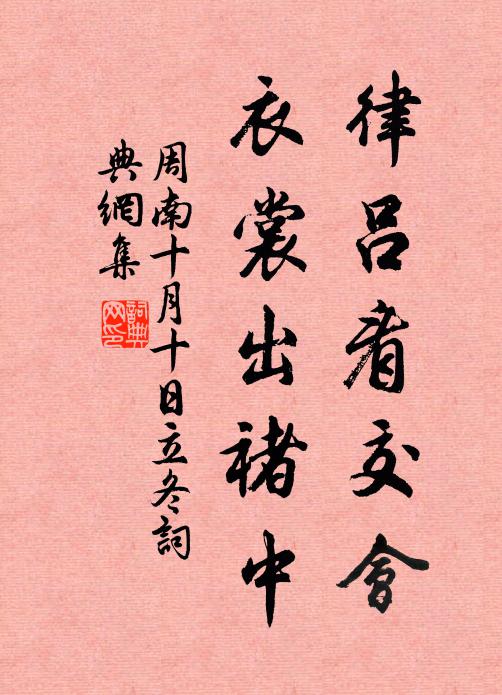 律呂看交會
衣裳出褚中
周南十月十日立冬詞
典網集
詞典网印